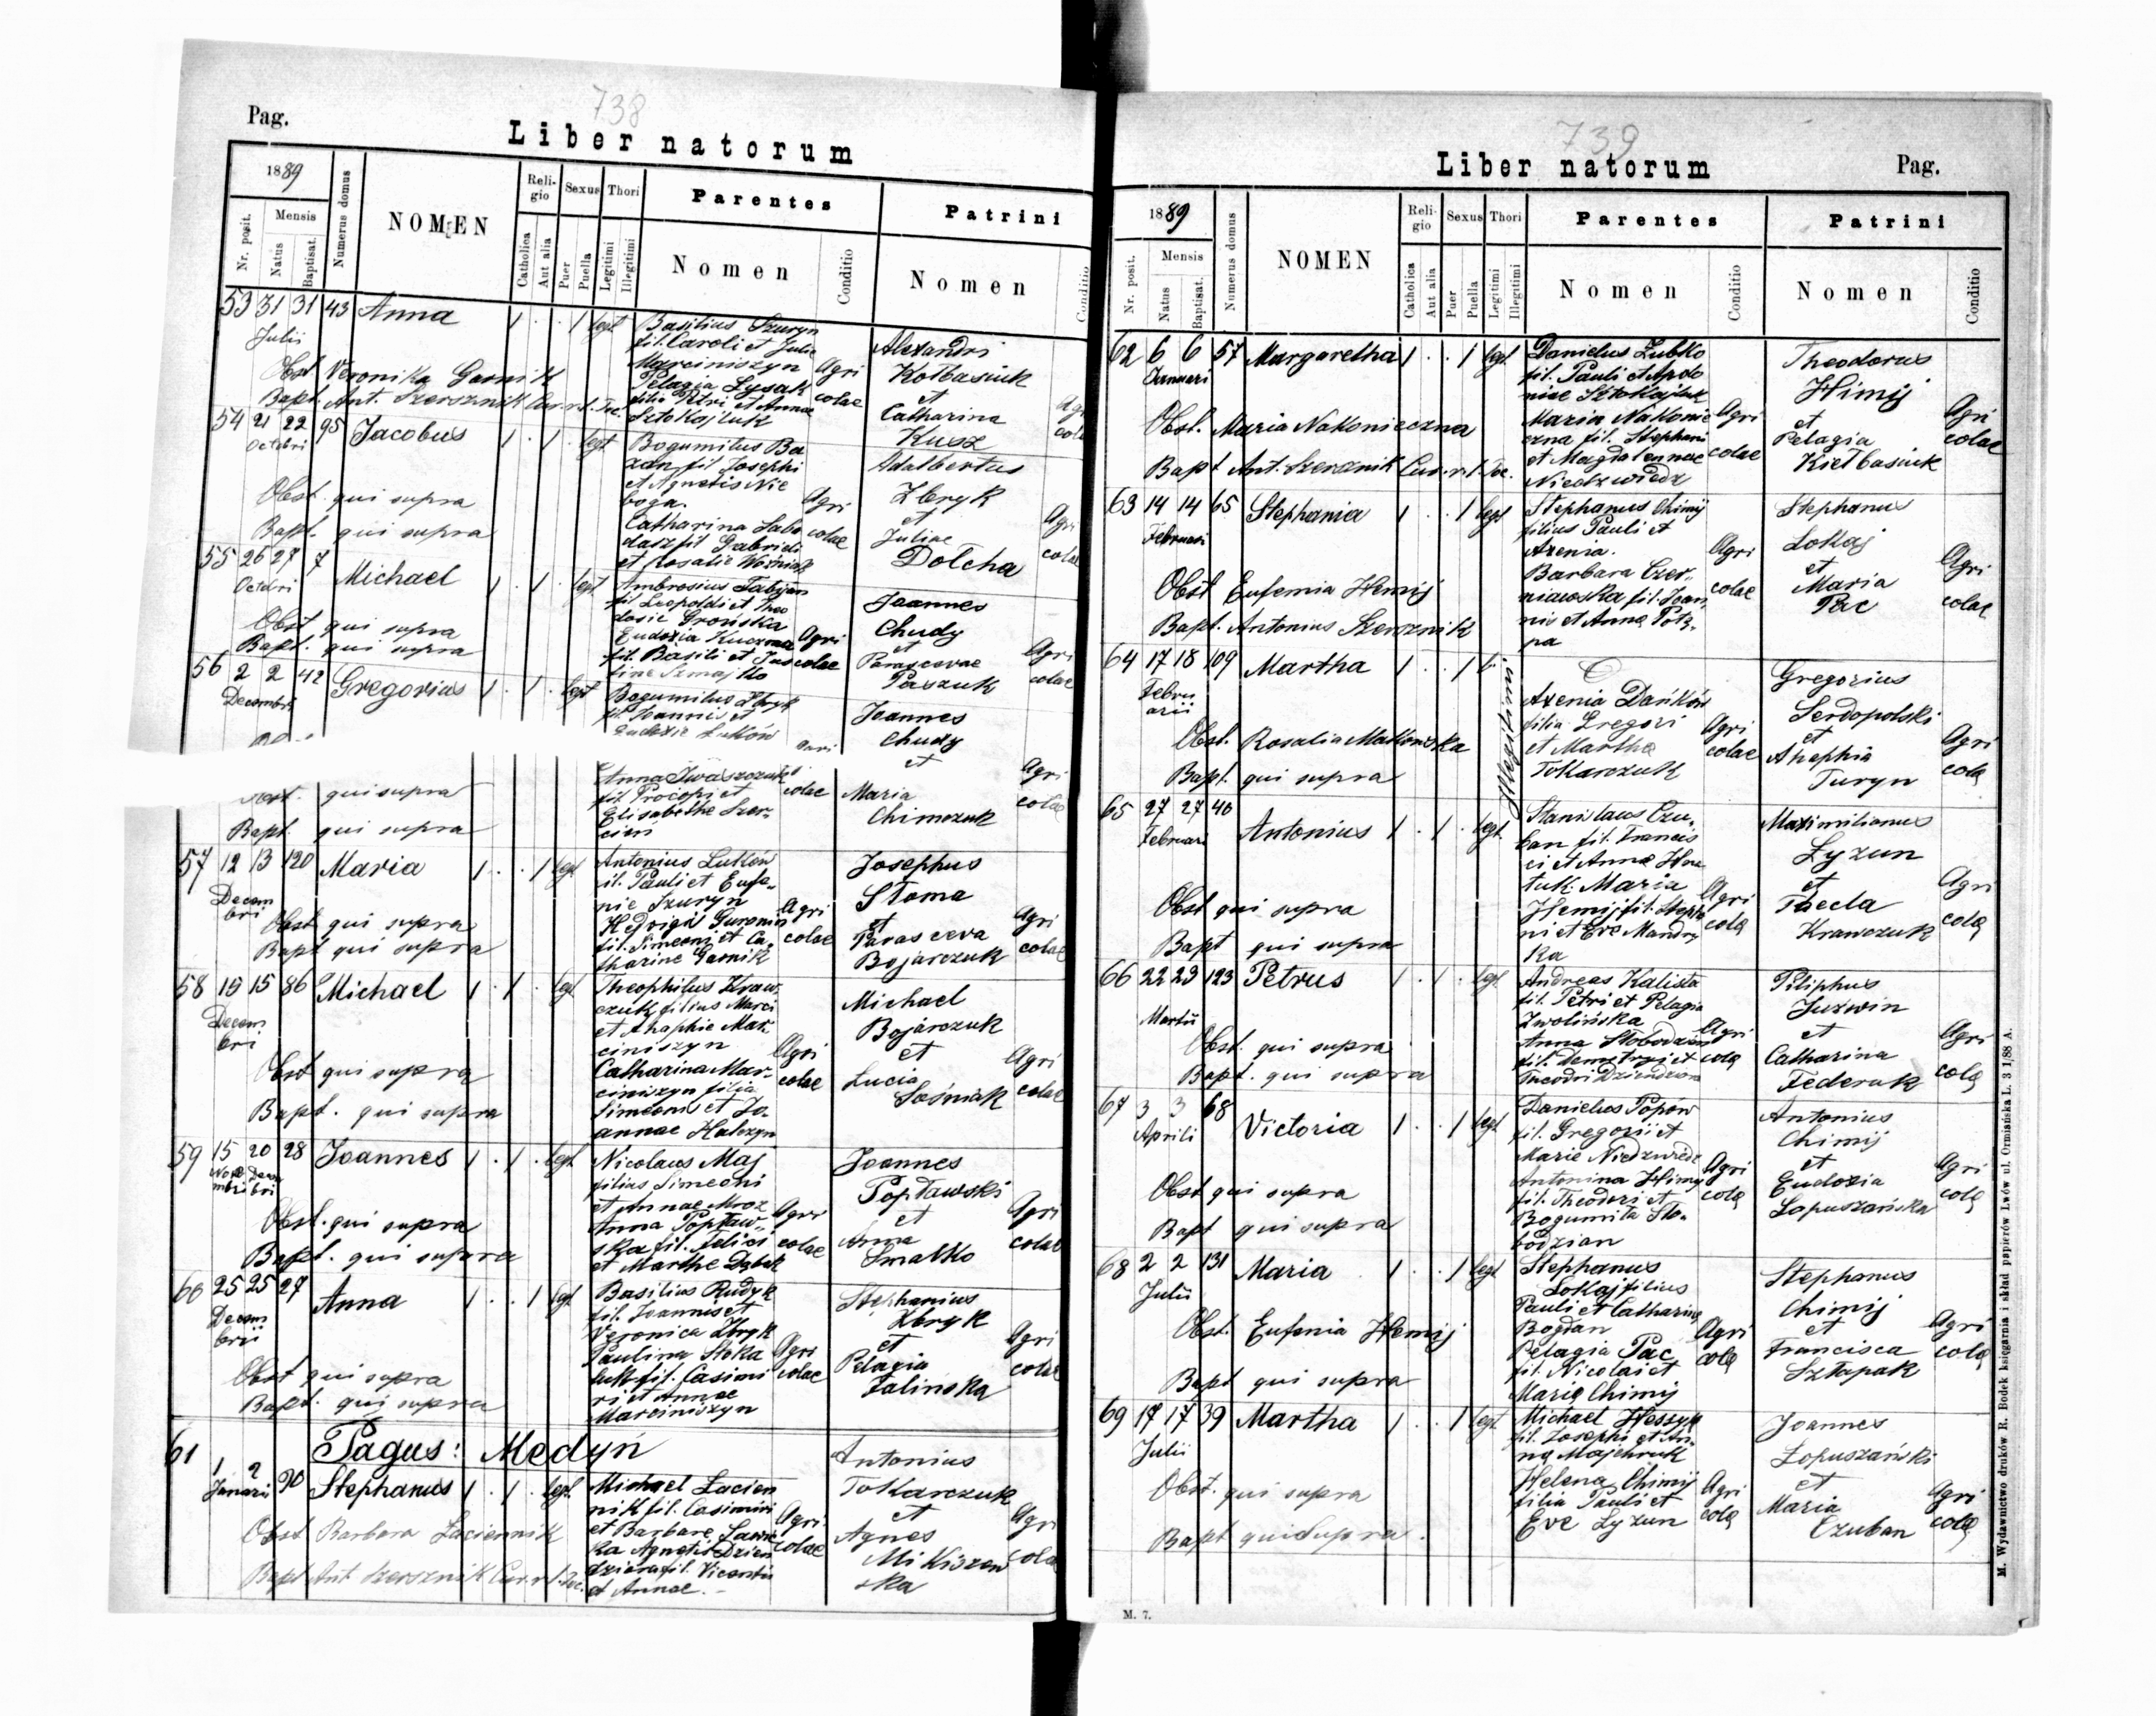 738
Pag.
Liber natorum
1889
Nr. posit.
Mensis
Natus
Baptisat.
Numerus domus
NOMEN
Religio
Catholica
Aut alia
Sexus
Puer
Puella
Thori
Legitimi
Illegitimi
Parentes
Nomen
Conditio
Patrini
Nomen
Conditio
53 31 31 43 Anna 1 . . 1 legt
Julii
Basilius Szuryn
fil. Caroli et Julie
Marciniszyn
Pelagia Lysak
filia Petri et Annae
Sztokajluk
Agri
colae
Alexandri
Kolbasiuk
et
Catharina
Kusz
Agri
colae
Obst Veronika Garnik
Bapt. Ant. Szersznik Cur. r. l. Toc.
54 21 22 95 Jacobus 1 . 1 . legt
Octobri
Bogumilus Ba
zan fil Josephi
et Agnetis Nie
boga.
Catharina Labo
dasz fil Gabrieli
et Rosalie Woźniak
Agri
colae
Adalbertus
Zbryk
et
Juliae
Dolcha
Agri
colae
Obst. qui supra
Bapt. qui supra
55 26 27 7 Michael 1 . 1 . legt
Octobri
Ambrosius Fabijan
fil Leopoldi et Theo
dosie Grońska
Eudoxia Kuczma
fil. Basili et Jus
tine Szmajlko
Agri
colae
Joannes
Chudy
et
Parascevae
Paszuk
Agri
colae
Obst qui supra
Bapt. qui supra
56 2 2 42 Gregorius 1 . 1 . legt
Decembri
Bogumilus Zbryk
fil. Joannis et
Eudoxie Luków
Anna Iwaszczuk
fil Procopi et
Elisabethe Szer-
cien
Agri
colae
Joannes
Chudy
et
Maria
Chimczuk
Agri
colae
Obst. qui supra
Bapt. qui supra
57 12 13 120 Maria 1 . . 1 legt
Decem
bri
Antonius Luków
fil. Pauli et Eufe-
nie Szuryn
Hedvigis Guronin
fil. Simeoni et Ca-
tharine Garnik
Agri
colae
Josephus
Stoma
et
Parasceva
Bojarczuk
Agri
colae
Obst qui supra
Bapt qui supra
58 15 15 86 Michael 1 . 1 . legt
Decem
bri
Theophilus Kraw
czuk filius Marci
et Ahaphie Mar
ciniszyn
Catharina Mar-
ciniszyn filia
Simeoni et Jo
annae Halczyn
Agri
colae
Michael
Bojarczuk
et
Lucia
Sośniak
Agri
colae
Obst qui supra
Bapt. qui supra
59 15 20 28 Joannes 1 . 1 . legt
Nicolaus Maj
filius Simeoni
et Annae Mroz
Anna Popław-
ska fil. Felici
et Marthe Dąbek
Agri
colae
Joannes
Popławski
et
Anna
Smalko
Agri
colae
Obst. qui supra
Bapt. qui supra
60 25 25 27 Anna 1 . . 1 legt
Decem
brii
Basilius Rudyk
fil. Joannis et
Veronica Zbryk
Paulina Stoka
luk fil. Casimi
ri et Annae
Marciniszyn
Agri
colae
Stephanius
Zbryk
et
Pelagia
Zalinska
Agri
colae
Obst qui supra
Bapt. qui supra
Pagus: Medyń
61 1 2 90 Stephanus 1 . 1 . legt
Januarii
Michael Łacien
nik fil. Casimiri
et Barbare Sawic
ka Agnetis Dzien
dziora fil. Vicentii
et Annae.
Agri
colae
Antonius
Tokarczuk
et
Agnes
Mikiszew
ska
Agri
colae
Obst Barbara Łaciennik
Bapt Ant Szersznik Cur. r. l. Toc.
739
Liber natorum
Pag.
1889
Nr. posit.
Mensis
Natus
Baptisat.
Numerus domus
NOMEN
Religio
Catholica
Aut alia
Sexus
Puer
Puella
Thori
Legitimi
Illegitimi
Parentes
Nomen
Conditio
Patrini
Nomen
Conditio
62 6 6 57 Margaretha 1 . . 1 legt
Januari
Danielus Zubko
fil. Pauli et Apolo
niae Sztokajluk
Maria Nakonie
czna fil. Stephani
et Magdalennae
Niedzwiedz
Agri
colae
Theodorus
Himij
et
Pelagia
Kiełbasiuk
Agri
colae
Obst. Maria Nakonieczna
Bapt Ant. Szersznik Cur. r. l. Toc.
63 14 14 65 Stephania 1 . . 1 legt
Februari
Stephanus Chimij
filius Pauli et
Axenia.
Barbara Czer-
niawska fil. Joan-
nis et Anna Potz-
pa
Agri
colae
Stephanus
Lokaj
et
Maria
Pac
Agri
colae
Obst Eufemia Hemij
Bapt. Antonius Szersznik
64 17 18 109 Martha 1 . . 1
Febru
arii
Illegitimi
Axenia Dańków
filia Gregori
et Martha
Tokarczuk
Agri
colae
Gregorius
Serdopolski
et
Ahephia
Turyn
Agri
colę
Obst. Rosalia Makowska
Bapt. qui supra
65 27 27 40 Antonius 1 . 1 . legt.
Februari
Stanislaus Czu-
ban fil. Francis
ci et Anna Hna
tuk. Maria
Hemij fil. Stepha
ni et Eve Mandry
ka
Agri
colę
Maximilianus
Łyzun
et
Thecla
Krawczuk
Agri
colę
Obst qui supra
Bapt qui supra
66 22 23 123 Petrus 1 . 1 . legt
Martii
Andreas Kalista
fil. Petri et Pelagia
Zwolińska
Anna Słobodzian
fil. Demetryi et
Theodri Dziendziora
Agri
colę
Piliphus
Juzwin
et
Catharina
Federuk
Agri
colę
Obst. qui supra
Bapt. qui supra
67 3 3 68 Victoria 1 . . 1 legt
Aprili
Danielus Popów
fil. Gregorii et
Marie Niedzwiedz
Antonina Himij
fil. Theodori et
Bogumiła Sło-
bodzian
Agri
colę
Antonius
Chimij
et
Eudoxia
Łopuszańska
Agri
colę
Obst qui supra
Bapt qui supra
68 2 2 131 Maria 1 . . 1 legt
Julii
Stephanus
Lokaj filius
Pauli et Catharina
Bogdan
Pelagia Pac
fil. Nicolai et
Marie Chimij
Agri
colę
Stephanus
Chimij
et
Francisca
Sztapak
Agri
colę
Obst. Eufenia Hemij
Bapt qui supra
69 17 17 39 Martha 1 . . 1 legt
Julii
Michael Hessyn
fil. Josephi et An-
na Majchruk
Helena Chimij
filia Pauli et
Eve Lyzun
Agri
colę
Joannes
Łopuszański
et
Maria
Czuban
Agri
colę
Obst. qui supra
Bapt qui supra.
M. 7.
M. Wydawnictwo druków R. Bodek księgarnia i skład papierów Lwów ul. Ormiańska L. 3 1/88 A.